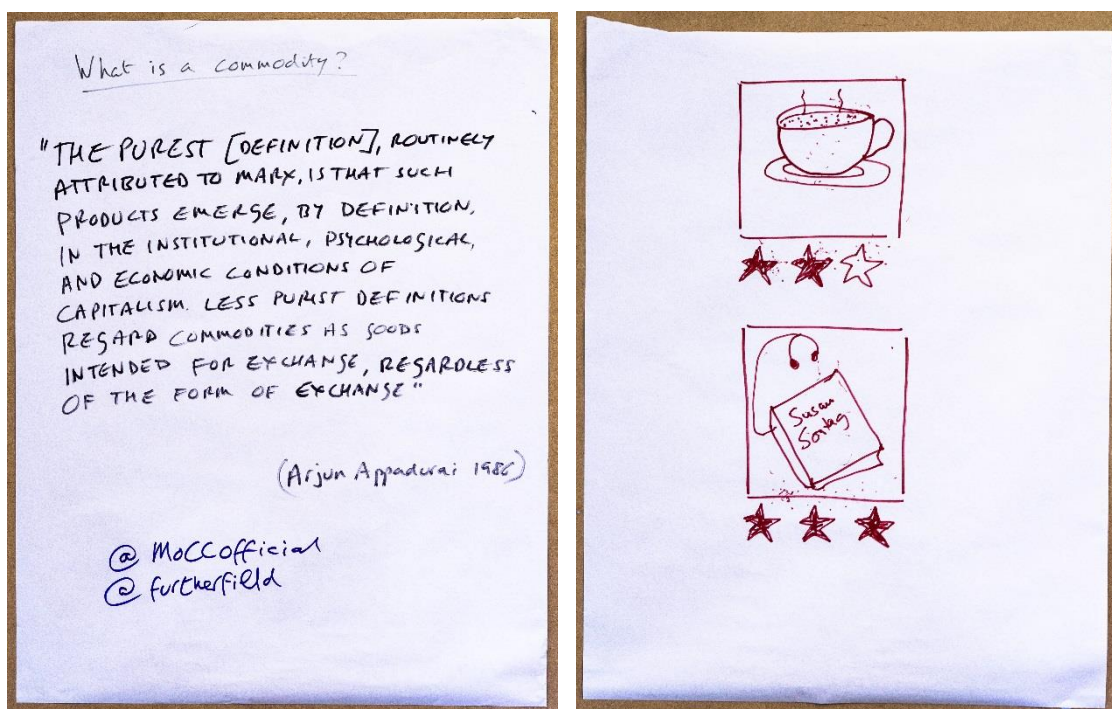 What is a commodity?
"THE PUREST [DEFINITION], ROUTINELY
ATTRIBUTED TO MARX, IS THAT SUCH
PRODUCTS EMERGE, BY DEFINITION,
IN THE INSTITUTIONAL, PSYCHOLOGICAL,
AND ECONOMIC CONDITIONS OF
CAPITALISM. LESS PURIST DEFINITIONS
REGARD COMMODITIES AS GOODS
INTENDED FOR EXCHANGE, REGARDLESS
OF THE FORM OF EXCHANGE"
(Arjun Appadurai 1986)
@ MoCCofficial
@ furtherfield
Susan
Sontag